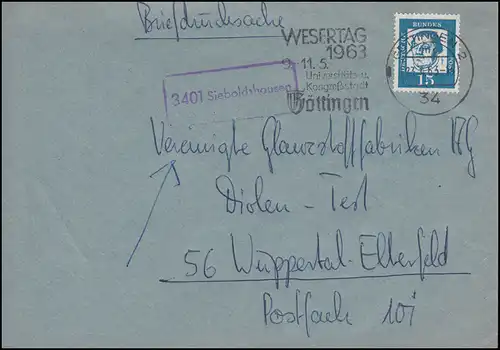 Briefdrucksache
WESERTAG
1963
9.-11.5.
Universitäts-u.
Kongreßstadt
Göttingen
3401 Sieboldshausen
DEUTSCHE BUNDESPOST
15
GÖTTINGEN 2
34
Vereinigte Glanzstoffabriken AG
Diolen - Test
56 Wuppertal-Elberfeld
Postfach 101